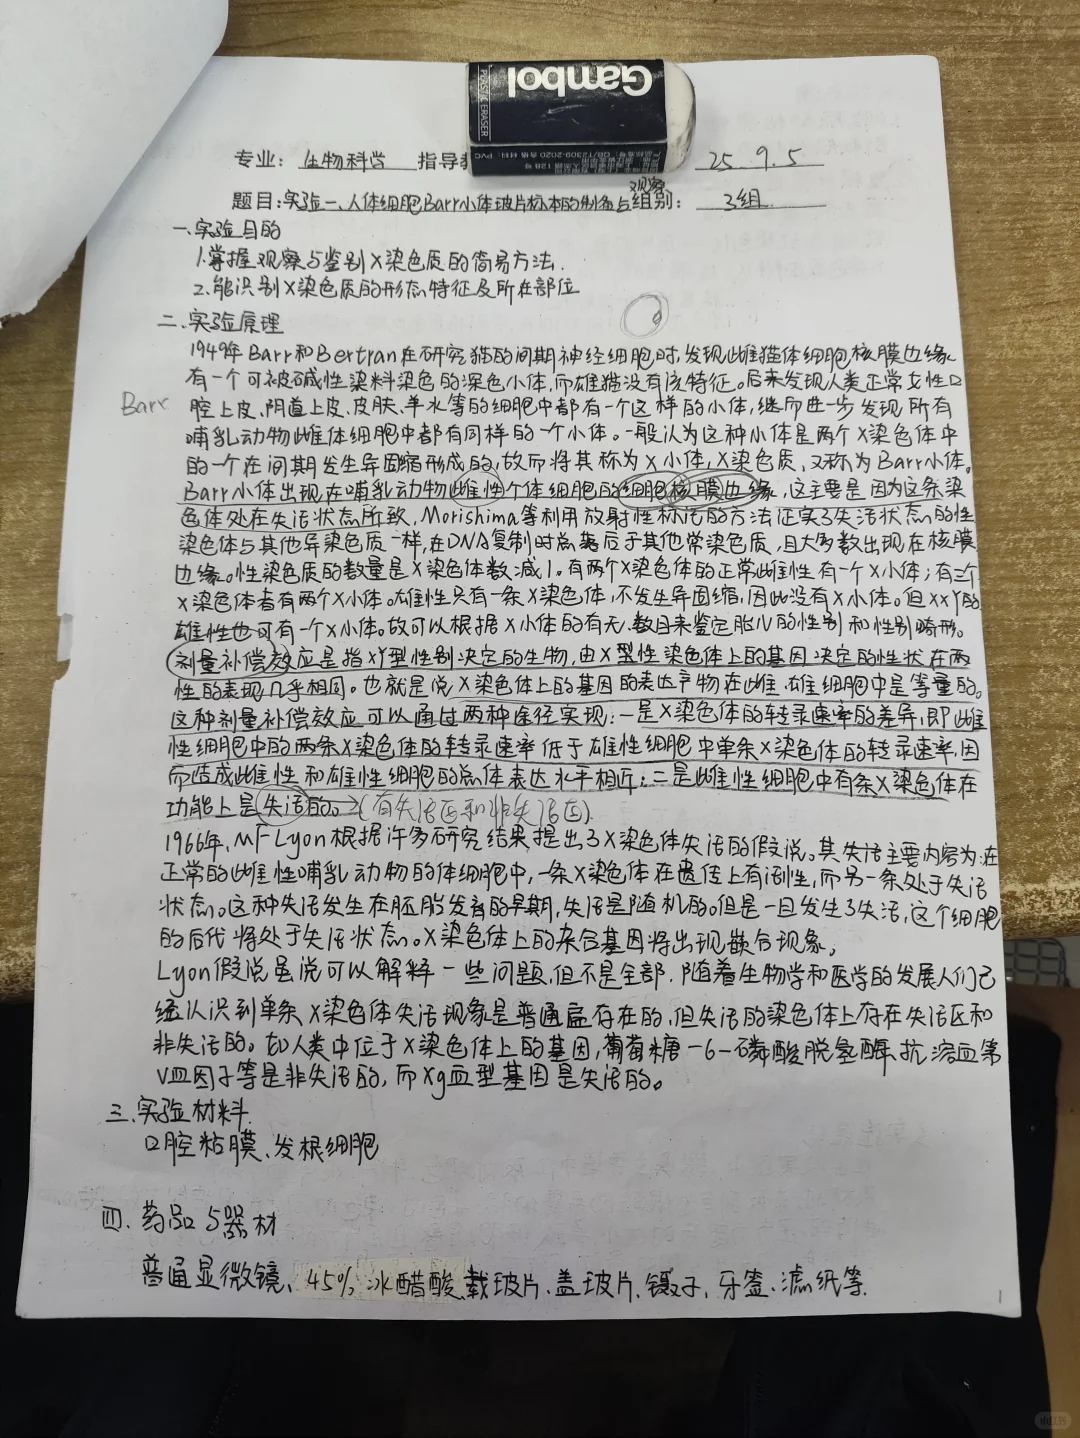 Gambol
PLASTIC ERASER
专业：生物科学 指导教 25 9.5
观察
题目：实验一、人体细胞Barr小体玻片标本的制备与组别：3组
一.实验目的
1.掌握观察与鉴别X染色质的简易方法.
2.能识别X染色质的形态特征及所在部位
二.实验原理
1949年Barr和Bertran在研究猫的间期神经细胞时,发现雌猫体细胞核膜边缘
有一个可被碱性染料染色的深色小体,而雄猫没有该特征。后来发现人类正常女性口
Barr
腔上皮、阴道上皮、皮肤、羊水等的细胞中都有一个这样的小体,继而进一步发现所有
哺乳动物雌体细胞中都有同样的一个小体。一般认为这种小体是两个X染色体中
的一个在间期发生异固缩形成的,故而将其称为X小体,X染色质,又称为Barr小体。
Barr小体出现在哺乳动物雌性个体细胞的细胞核膜边缘,这主要是因为这条染
色体处在失活状态所致,Morishima等利用放射性标记的方法证实了失活状态的性
染色体与其他异染色质一样,在DNA复制时总落后于其他常染色质,且大多数出现在核膜
边缘。性染色质的数量是X染色体数减1。有两个X染色体的正常雌性有一个X小体;有三个
X染色体者有两个X小体。雄性只有一条X染色体,不发生异固缩,因此没有X小体。但XXY的
雄性也可有一个X小体。故可以根据X小体的有无、数目来鉴定胎儿的性别和性别畸形。
剂量补偿效应是指XY型性别决定的生物,由X型性染色体上的基因决定的性状在两
性的表现几乎相同。也就是说X染色体上的基因的表达产物在雌、雄细胞中是等量的。
这种剂量补偿效应可以通过两种途径实现:一是X染色体的转录速率的差异,即雌
性细胞中的两条X染色体的转录速率低于雄性细胞中单条X染色体的转录速率,因
而造成雌性和雄性细胞的总体表达水平相近;二是雌性细胞中有条X染色体在
功能上是失活的。→(有失活区和非失活区)
1966年,MF Lyon根据许多研究结果提出了X染色体失活的假说。其失活主要内容为:在
正常的雌性哺乳动物的体细胞中,一条X染色体在遗传上有活性,而另一条处于失活
状态。这种失活发生在胚胎发育的早期,失活是随机的。但是一旦发生了失活,这个细胞
的后代将处于失活状态。X染色体上的杂合基因将出现嵌合现象。
Lyon假说虽说可以解释一些问题,但不是全部.随着生物学和医学的发展人们已
经认识到单条X染色体失活现象是普通存在的,但失活的染色体上存在失活区和
非失活的。如人类中位于X染色体上的基因,葡萄糖-6-磷酸脱氢酶、抗溶血第
V血因子等是非失活的,而Xg血型基因是失活的。
三.实验材料
口腔粘膜、发根细胞
四.药品与器材
普通显微镜、45%冰醋酸、载玻片、盖玻片、镊子、牙签、滤纸等.
1